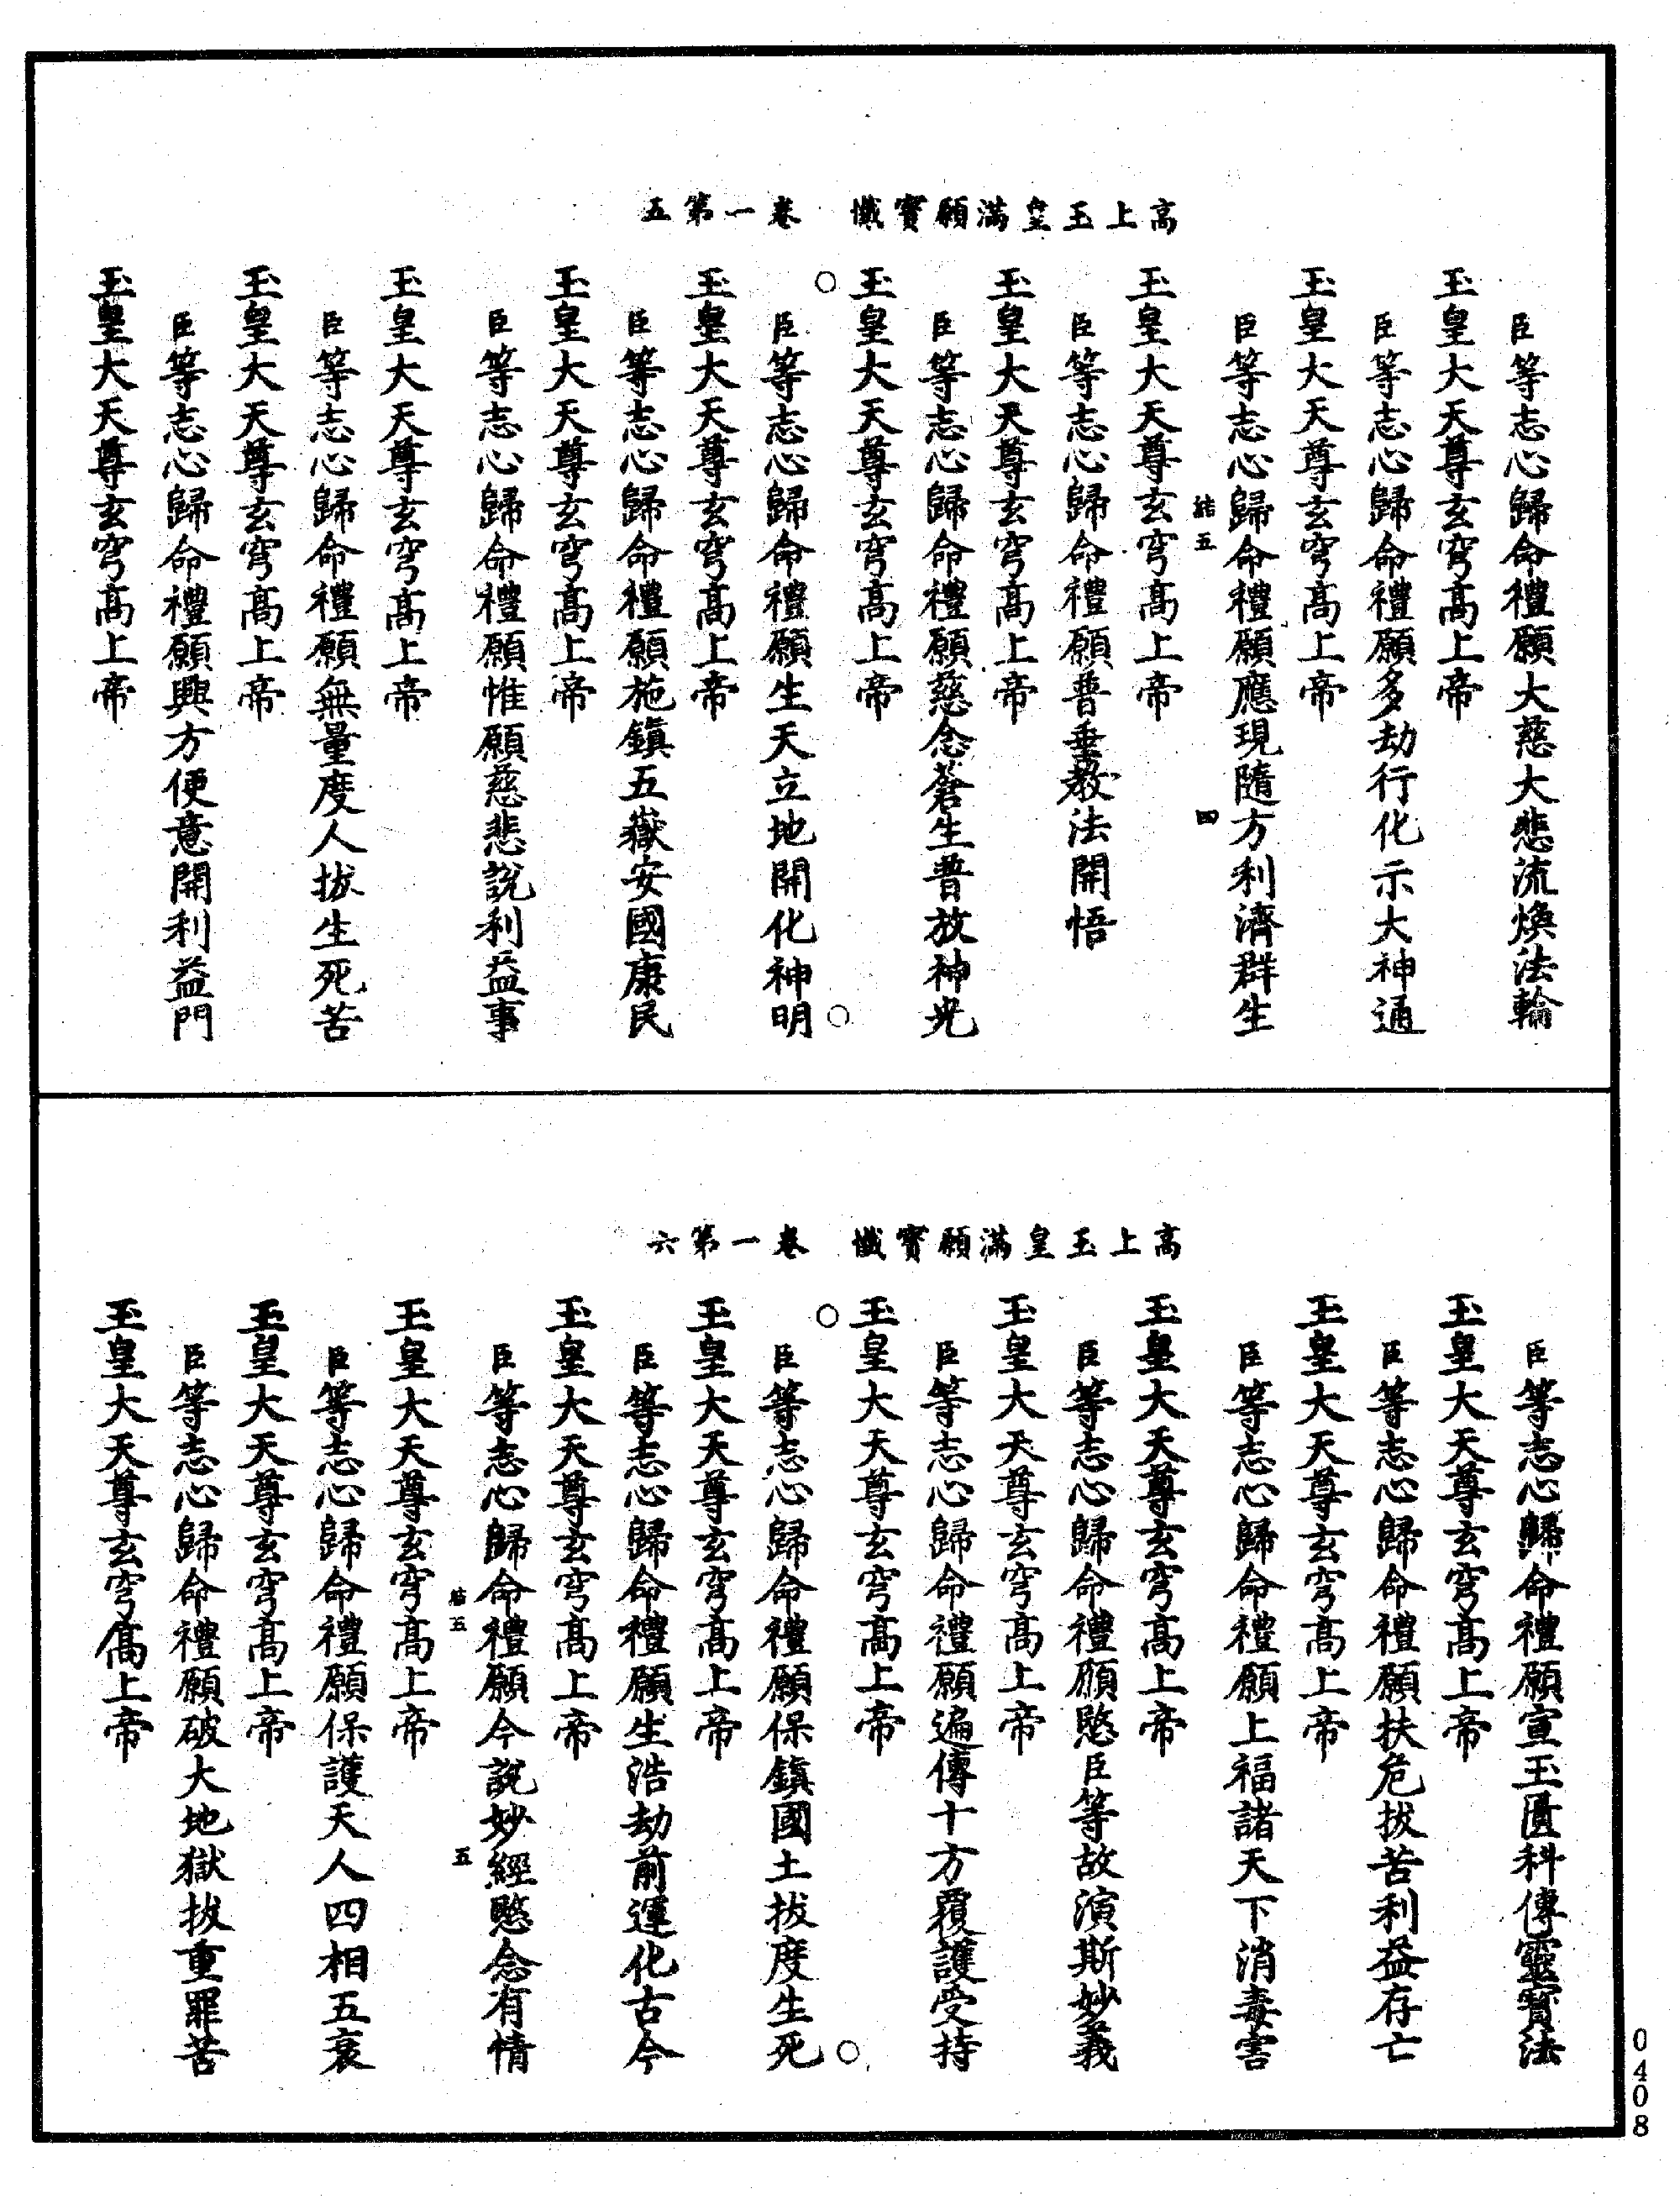 高上玉皇滿願寶懺　卷一第五
臣等志心歸命禮願大慈大悲流煥法輪
玉皇大天尊玄穹高上帝
臣等志心歸命禮願多劫行化示大神通
玉皇大天尊玄穹高上帝
臣等志心歸命禮願應現隨方利濟群生
結五　四
玉皇大天尊玄穹高上帝
臣等志心歸命禮願普垂教法開悟
玉皇大天尊玄穹高上帝
臣等志心歸命禮願慈念蒼生普放神光
玉皇大天尊玄穹高上帝
臣等志心歸命禮願生天立地開化神明
玉皇大天尊玄穹高上帝
臣等志心歸命禮願施鎮五嶽安國康民
玉皇大天尊玄穹高上帝
臣等志心歸命禮願惟願慈悲說利益事
玉皇大天尊玄穹高上帝
臣等志心歸命禮願無量度人拔生死苦
玉皇大天尊玄穹高上帝
臣等志心歸命禮願興方便意開利益門
玉皇大天尊玄穹高上帝
高上玉皇滿願寶懺　卷一第六
臣等志心歸命禮願宣玉匱科傳靈寶法
玉皇大天尊玄穹高上帝
臣等志心歸命禮願扶危拔苦利益存亡
玉皇大天尊玄穹高上帝
臣等志心歸命禮願上福諸天下消毒害
玉皇大天尊玄穹高上帝
臣等志心歸命禮願愍臣等故演斯妙義
玉皇大天尊玄穹高上帝
臣等志心歸命禮願遍傳十方覆護受持
玉皇大天尊玄穹高上帝
臣等志心歸命禮願保鎮國土拔度生死
玉皇大天尊玄穹高上帝
臣等志心歸命禮願生浩劫前運化古今
玉皇大天尊玄穹高上帝
臣等志心歸命禮願今說妙經愍念有情
結五　五
玉皇大天尊玄穹高上帝
臣等志心歸命禮願保護天人四相五衰
玉皇大天尊玄穹高上帝
臣等志心歸命禮願破大地獄拔重罪苦
玉皇大天尊玄穹高上帝
0408